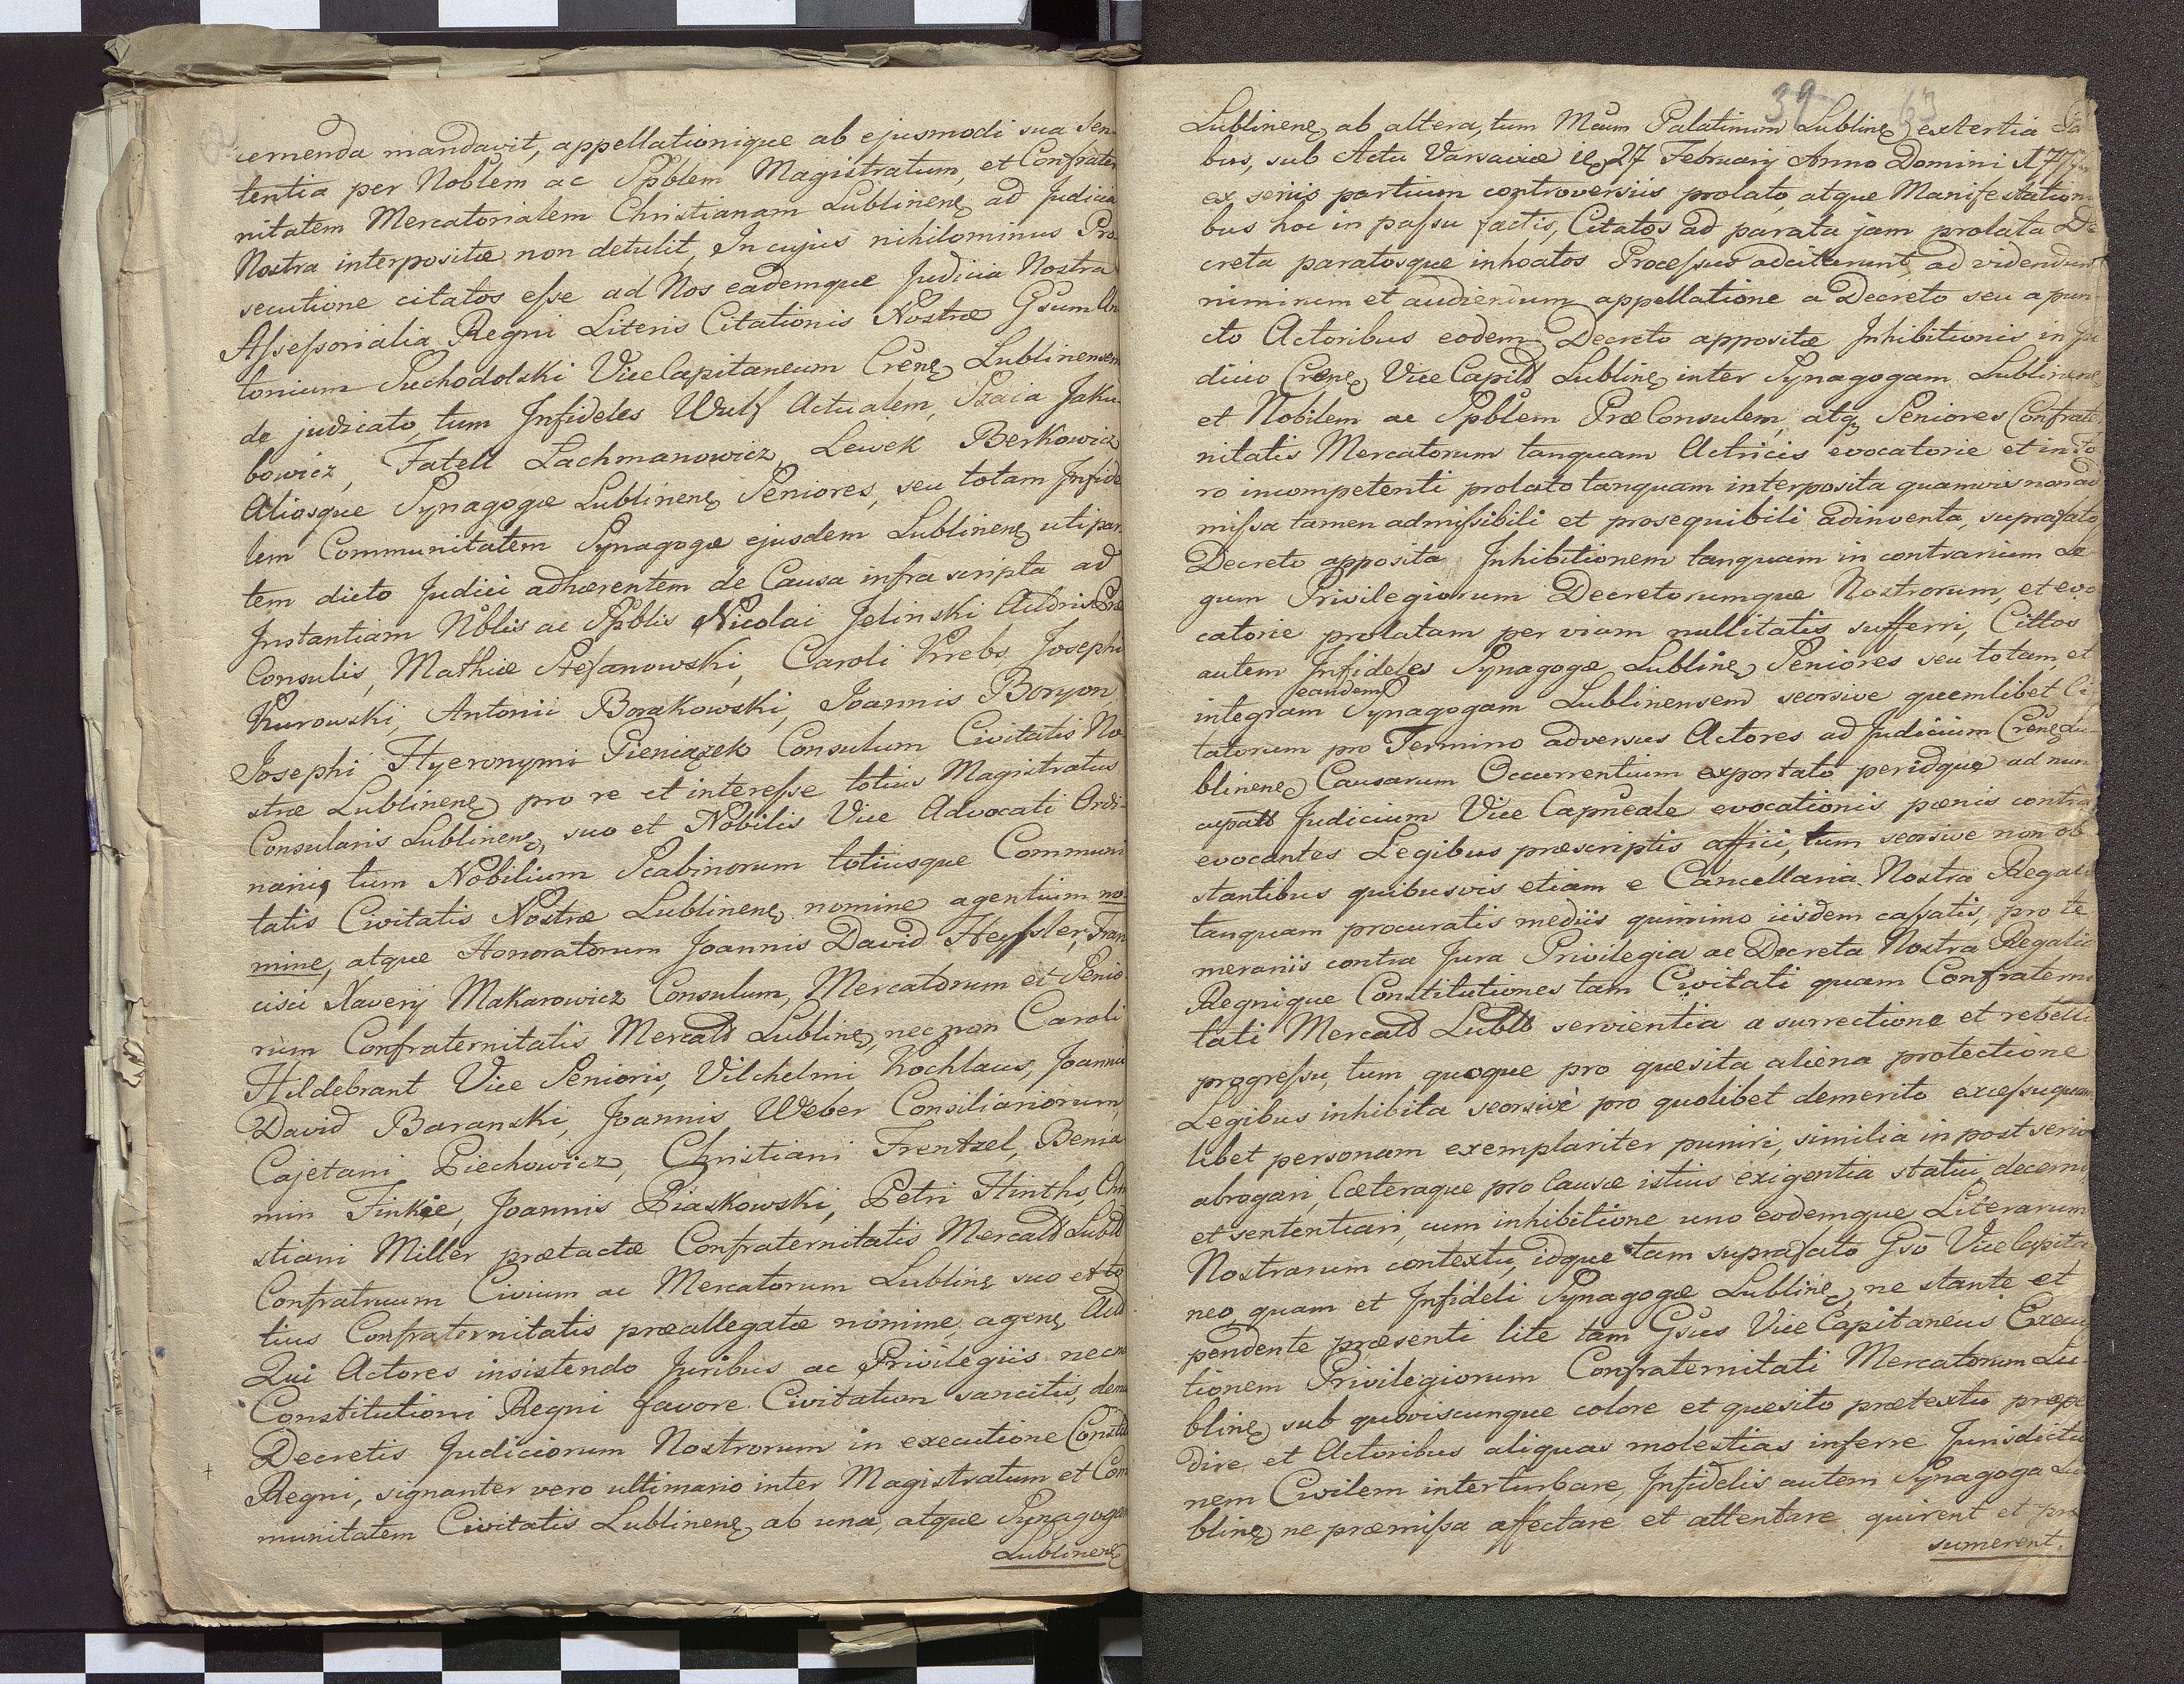 cernenda mandavit, appellationique ab ejusmodi sua Sen-
tentia per Noblem ac Spblem Magistratum, et Confrater
nitatem Mercatorialem Christianam Lublinenē ad Judicia
Nostra interpositæ non detulit, In cujus nihilominus Pro-
secutione citatos esse ad Nos eademque Judicia Nostra
Assessorialia Regni Literis Citationis Nostræ Gsum An
tonium Suchodolski ViceCapitaneum Crēnē Lublinensem
de judicato, tum Infideles Wulf Actualem, Szaia Jaku-
bowicz, Fatell Lachmanowicz, Lewek Berkowicz
Aliosque Synagogæ Lublinenē Seniores, seu totam Infide
lem Communitatem Synagogæ ejusdem Lublinenē uti par
tem dicto Judici adhærentem de Causa infra scripta ad
Instantiam Nblis ac Spblis Nicolai Jelinski Præ
Consulis, Mathiæ Stefanowski, Caroli Krebs, Josephi
Kurowski, Antonii Borakowski, Joannis Boryon,
Josephi Hyeronymi Pieniązek Consulum Civitatis No
stræ Lublinenē pro re et interesse totius Magistratus
Consularis Lublinenē, suo et Nobilis Vice Advocati Ordi-
narij, tum Nobilium Scabinorum totiusque Communi
tatis Civitatis Nostræ Lublinenē nomine agentium no-
mine, atque Honoratorum Joannis David Heyssler, Fran
cisci Xaverij Makarowicz Consulum, Mercatorum et Senio
rum Confraternitatis Mercatt Lublinē, nec non Caroli
Hildebrant Vice Senioris, Vilchelmi Kochlaus, Joannis
David Baranski, Joannis Weber Consiliariorum,
Cajetani Piechowicz, Christiani Frentzel, Benia
min Finkie, Joannis Piaskowski, Petri Hinths, Chri
stiani Miller prætactæ Confraternitatis Mercatt Lubltt
Confratruum Civium ac Mercatorum Lublinē suo et to
tius Confraternitatis præallegatæ nomine agenē
Qui Actores insistendo Juribus ac Privilegiis necno
Constitutioni Regni favore Civitatum sancitis, dem
Decretis Judiciorum Nostrorum in executione Constit
Regni, signanter vero ultimario inter Magistratum et Com
munitatem Civitatis Lublinenē ab una, atque Synagogam
Lublinenē
39 63
Lublinenē ab altera, tum Mcum Palatinum Lublinē ex tertia Pa
bus, sub Actu Varsaviæ 27 February Anno Domini 177
ex seriis partium controversiis prolato, atque Manifestation
bus hoc in passu factis, Citatos ad parata jam prolata De
creta paratosque inhoatos Processus adcitarunt ad videndum
nimirum et audiendum appellatione a Decreto seu a pun
cto Actoribus eodem Decreto appositæ Inhibitionis in Ju
dicio Crēnē ViceCapitt Lublinē inter Synagogam Lublinenē
et Nobilem ac Spblem PræConsulem, atq Seniores Confrate
nitatis Mercatorum tanquam Actricis evocatorie et in fo
ro incompetenti prolato tanquam interposita quamvis non ad
missa tamen admissibili et prosequibili adinventa, suprafato
Decreto apposita Inhibitionem tanquam in contrarium Le
gum Privilegiorum Decretorumque Nostrorum, et evo
catorie prolatam per viam nullitatis sufferri, Cittos
autem Infideles Synagogæ Lublinē Seniores seu totam, et
eandem
integram Synagogam Lublinensem seorsive quemlibet Ci
tatorum pro Termino adversus Actores ad Judicium Crēnē Lu
blinenē Causarum Occurrentium exportato peridque ad nun
cupatt Judicium Vice Capneale evocationis pœnis contra
evocantes Legibus præscriptis affici, tum seorsive non ob
stantibus quibusvis etiam e Cancellaria Nostra Regali
tanquam procuratis mediis quinimo iisdem cassatis, pro te
merariis contra Jura Privilegia ac Decreta Nostra Regalia
Regnique Constitutiones tam Civitati quam Confraterni
tati Mercatt Lubltt servientia a surrectione et rebelli
progressu, tum quoque pro quesita aliena protectione
Legibus inhibita seorsivè pro quolibet demerito excessu quam
libet personam exemplariter puniri, similia in post serio
abrogari, Cæteraque pro Causæ istius exigentia statui, decerni
et sententiari, cum inhibitione uno eodemque Literarum
Nostrarum contextu, idque tam suprafato Gsō Vice Capita
neo, quam et Infideli Synagogæ Lublinē, ne stante et
pendente præsenti lite tam Gsus Vice Capitaneus Execu
tionem Privilegiorum Confraternitati Mercatorum Lu-
blinē sub quoviscunque colore et quesito prætextu præpe
dire et Actoribus aliquas molestias inferre Jurisdictio
nem Civilem interturbare, Infidelis autem Synagoga Lu
blinē ne præmissa affectare et attentare quirent et præ
sumerent.